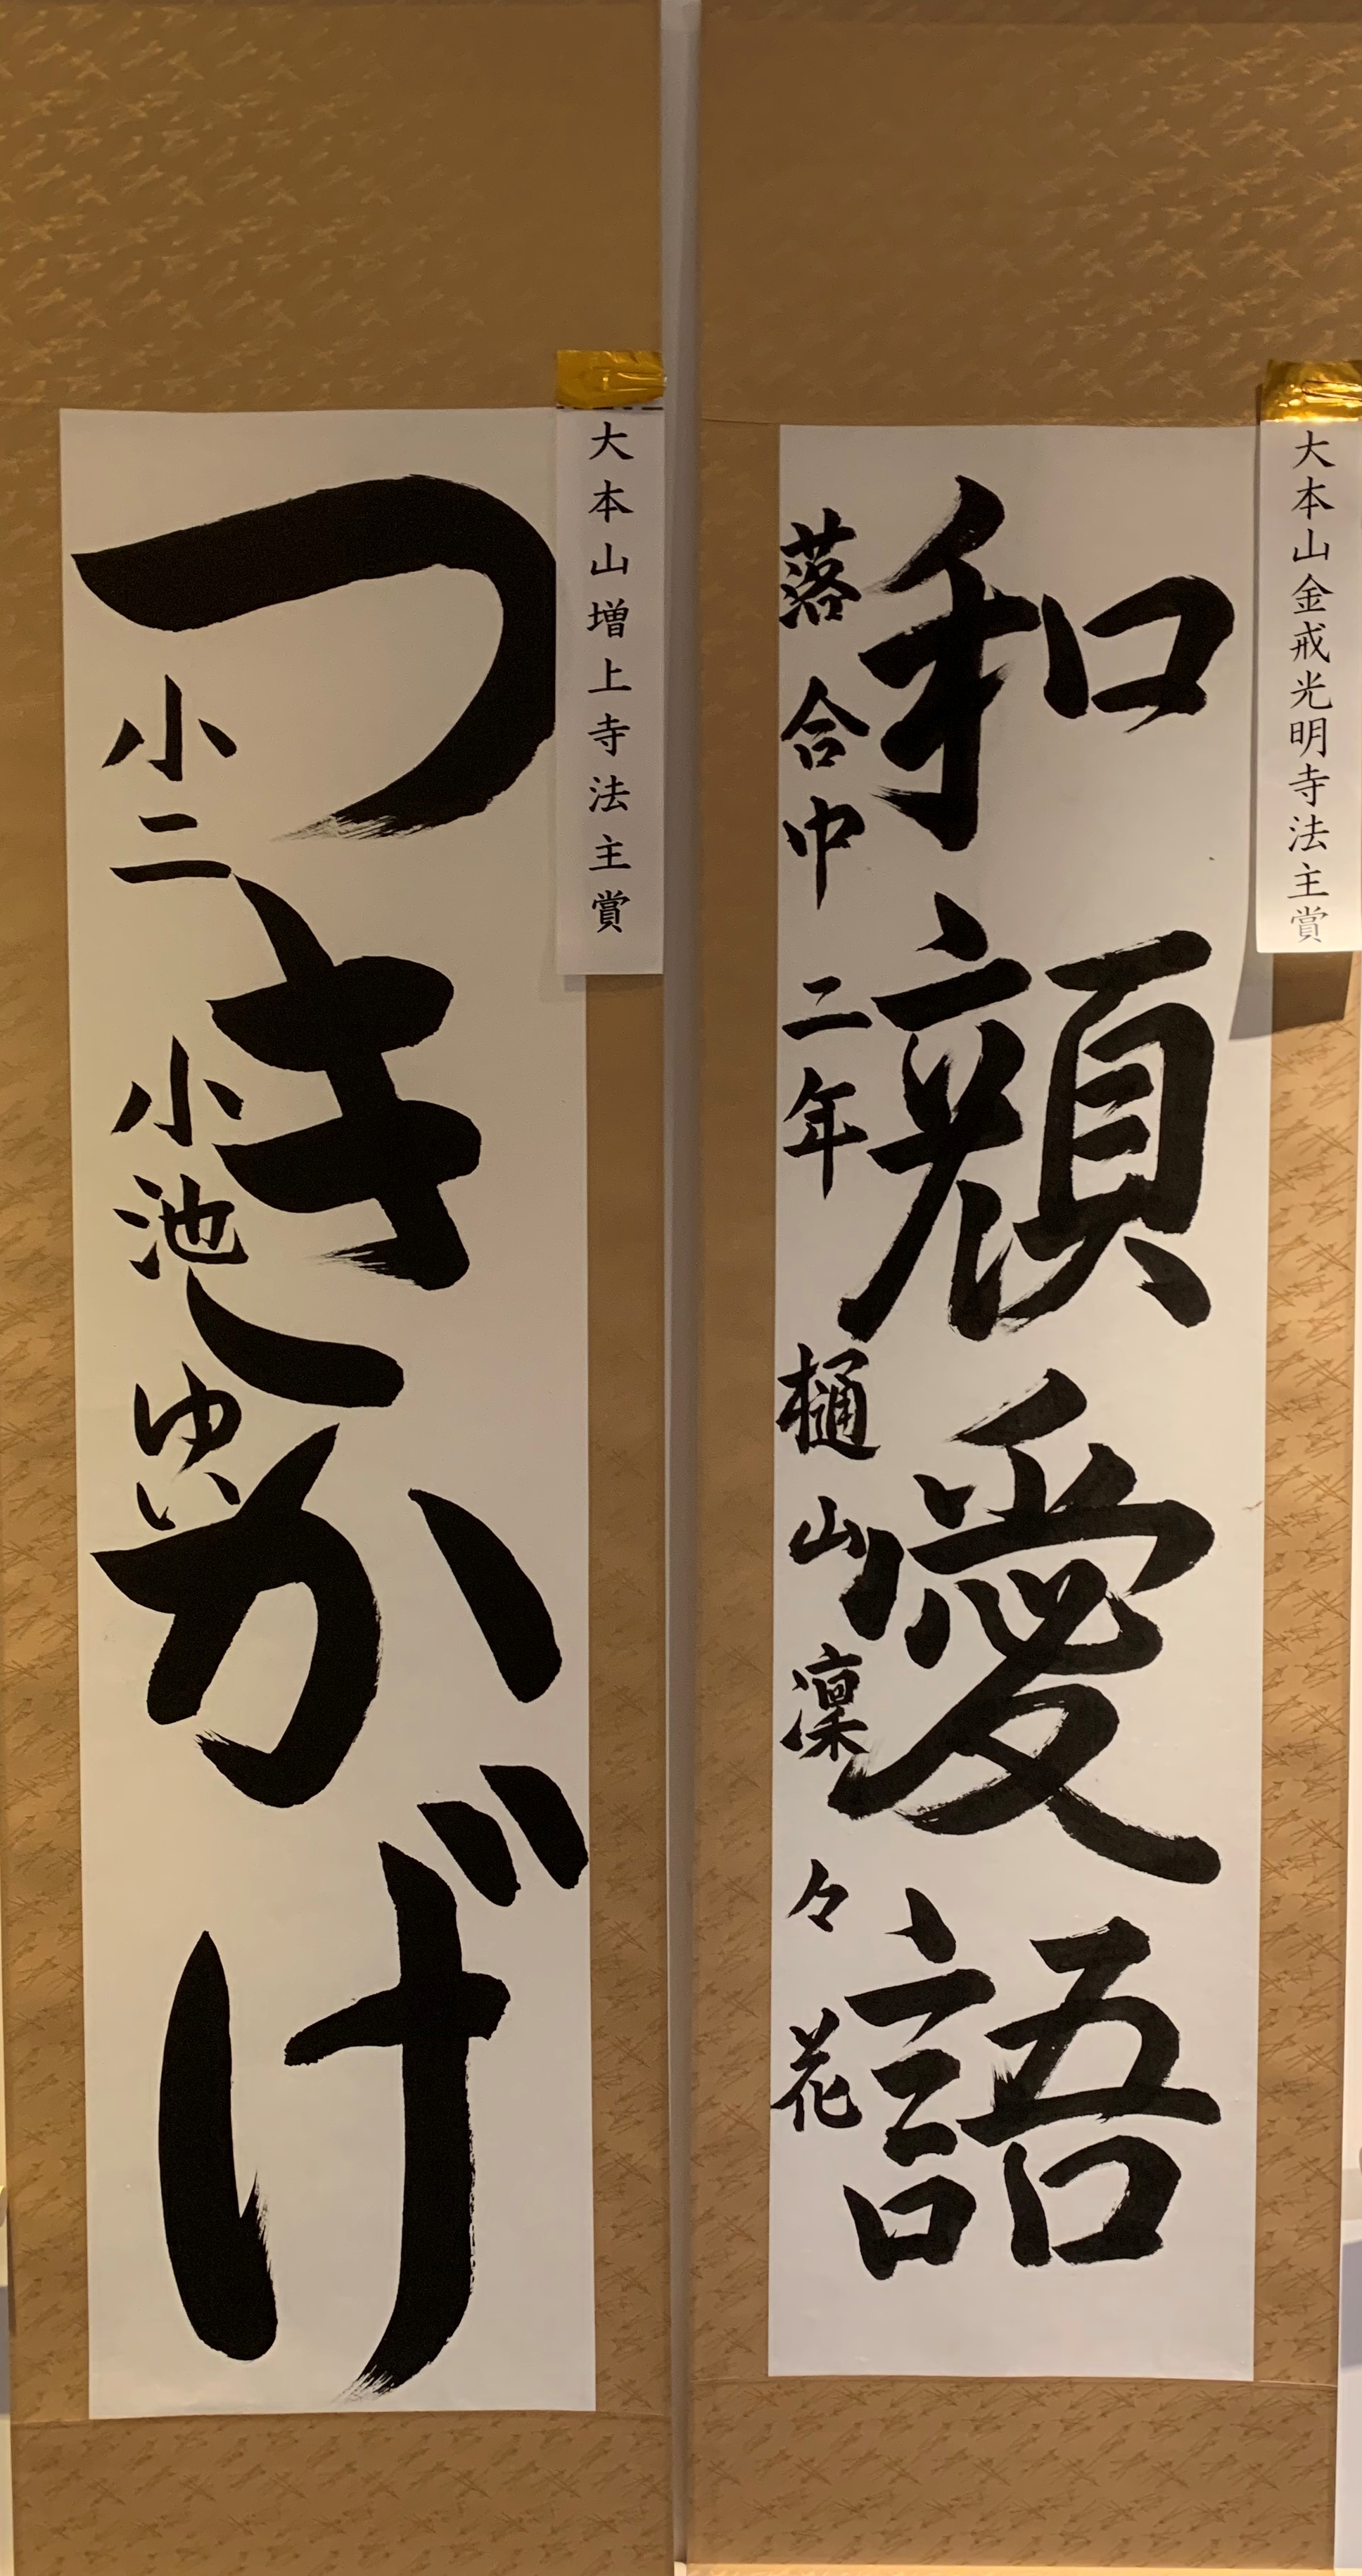 大本山金戒光明寺法主賞
和顔愛語
落合中二年樋山凜々花
大本山増上寺法主賞
つきかげ
小二小池ゆい